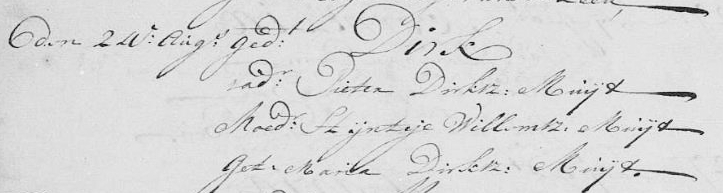 den 24: Aug: ged:t Dirk
vad:r Pieter Dirksz: Muijt
Moed:r Trijntje Willemsz: Muijt
Get: Maria Dirksz: Muijt.